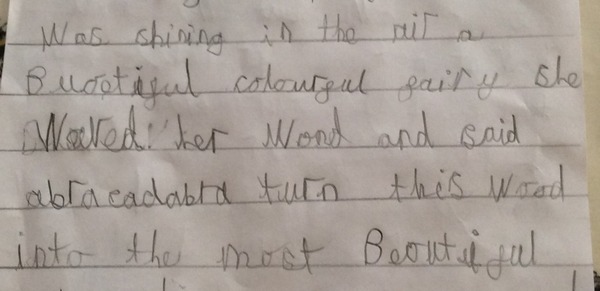 Was shining in the air a
Buootiful colourful fairy she
Waved her Wond and said
abracadabra turn this Wood
into the most Beoutiful